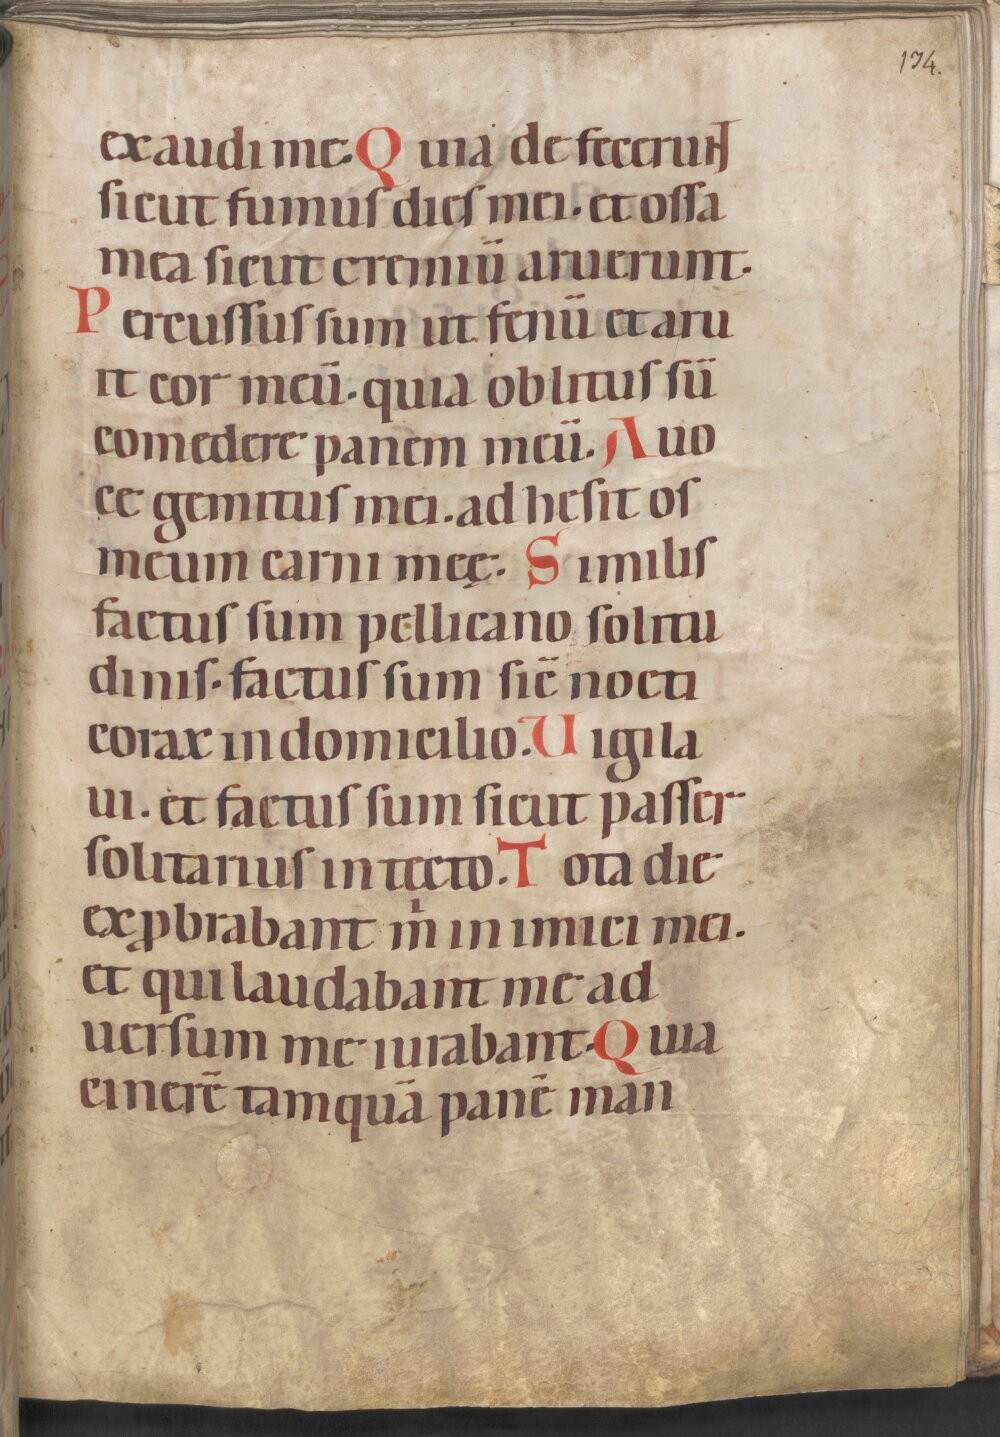 174.
exaudi me. Quia defecerunt
sicut fumus dies mei. et ossa
mea sicut cremiū aruerunt.
Percussus sum ut fenū et aru
it cor meū. quia oblitus sū
comedere panem meū. A uo
ce gemitus mei. adhesit os
meum carni meę. Similis
factus sum pellicano solitu
dinis. factus sum sic̄ nocti
corax in domicilio. Uigila
ui. et factus sum sicut passer
solitarius in tecto. Tota die
exꝓbrabant m̄ inimici mei.
et qui laudabant me ad
uersum me iurabant. Quia
cinerē tamquā panē man